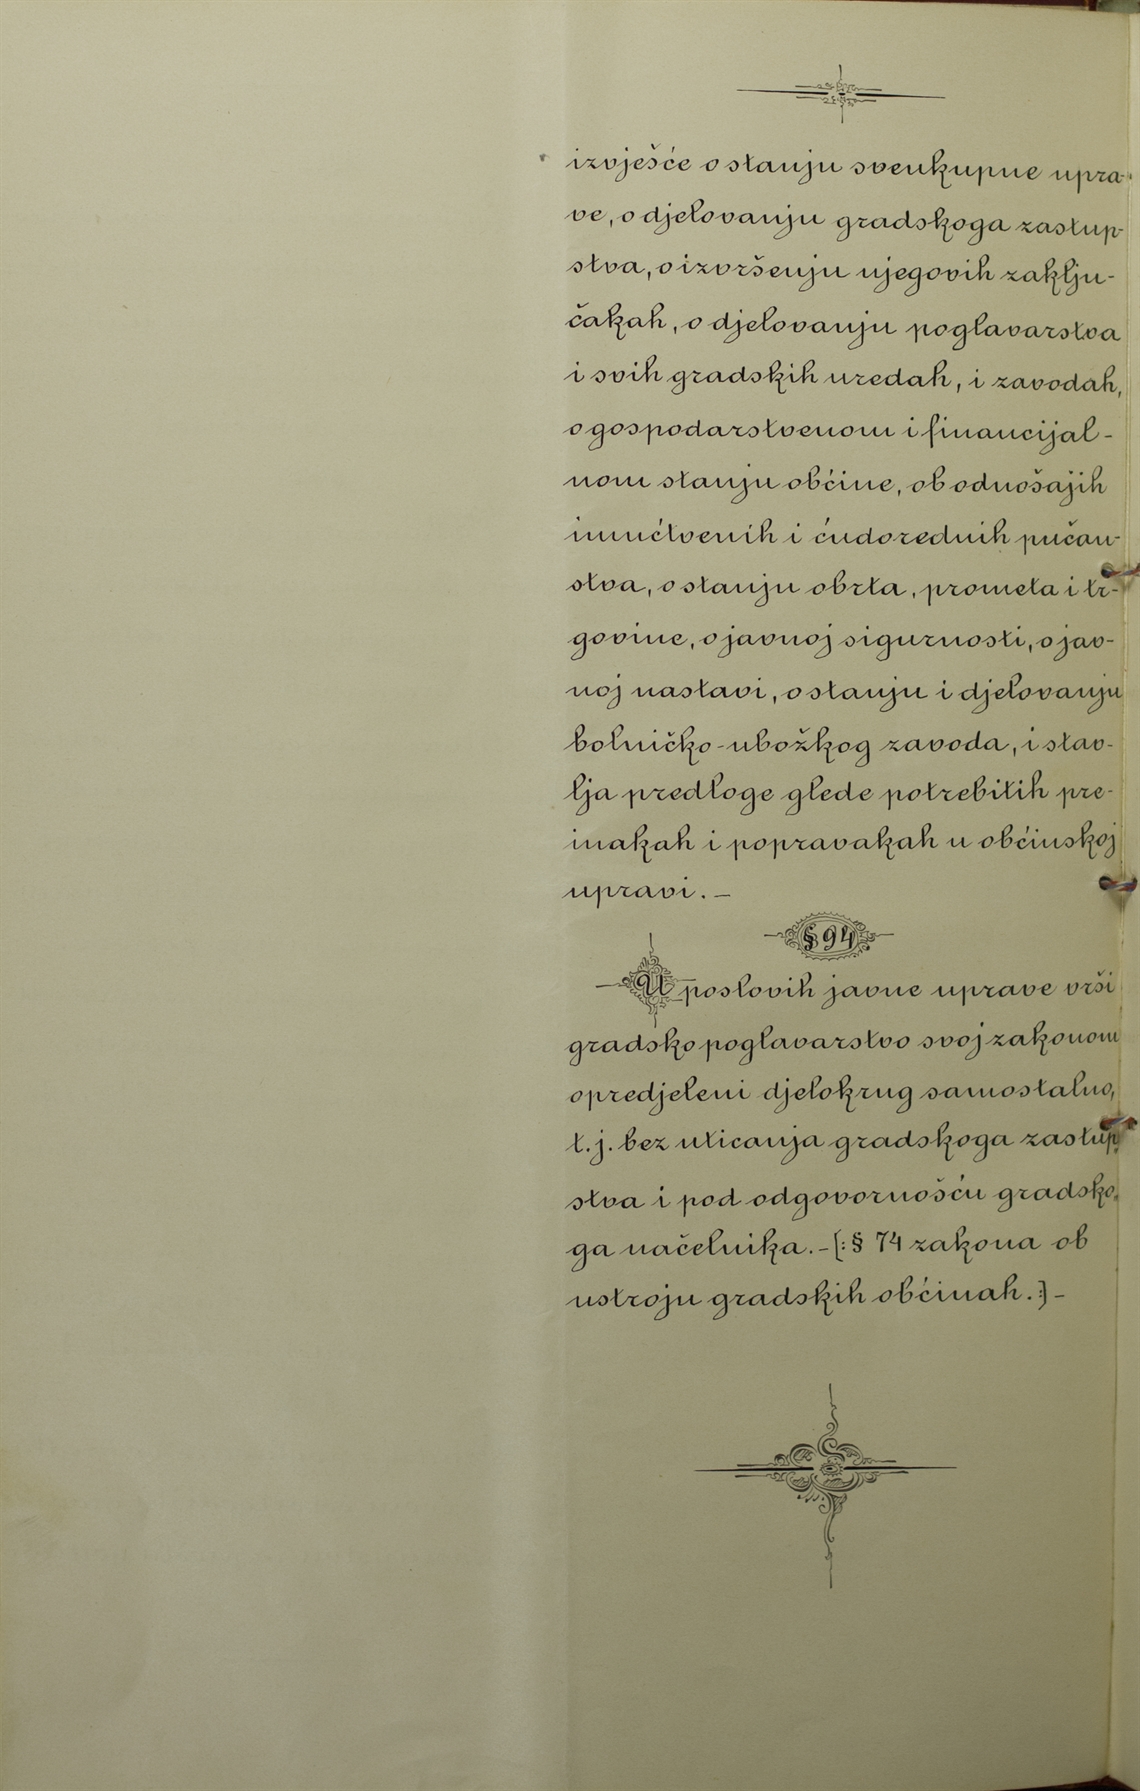 izvješće o stanju sveukupne upra-
ve, o djelovanju gradskoga zastup-
stva, o izvršenju njegovih zaklju-
čakah, o djelovanju poglavarstva
i svih gradskih uredah, i zavodah,
o gospodarstvenom i financijal-
nom stanju občine, ob odnošajih
imućtvenih i ćudorednih pučan-
stva, o stanju obrta, prometa i tr-
govine, o javnoj sigurnosti, o jav-
noj nastavi, o stanju i djelovanju
bolničko-ubožkog zavoda, i stav-
lja predloge glede potrebitih pre-
inakah i popravakah u obćinskoj
upravi. –
§ 94
U poslovih javne uprave vrši
gradsko poglavarstvo svoj zakonom
opredjeleni djelokrug samostalno,
t. j. bez uticanja gradskoga zastup-
stva i pod odgovornošću gradsko-
ga načelnika. – [: § 74 zakona ob
ustroju gradskih obćinah. :] –